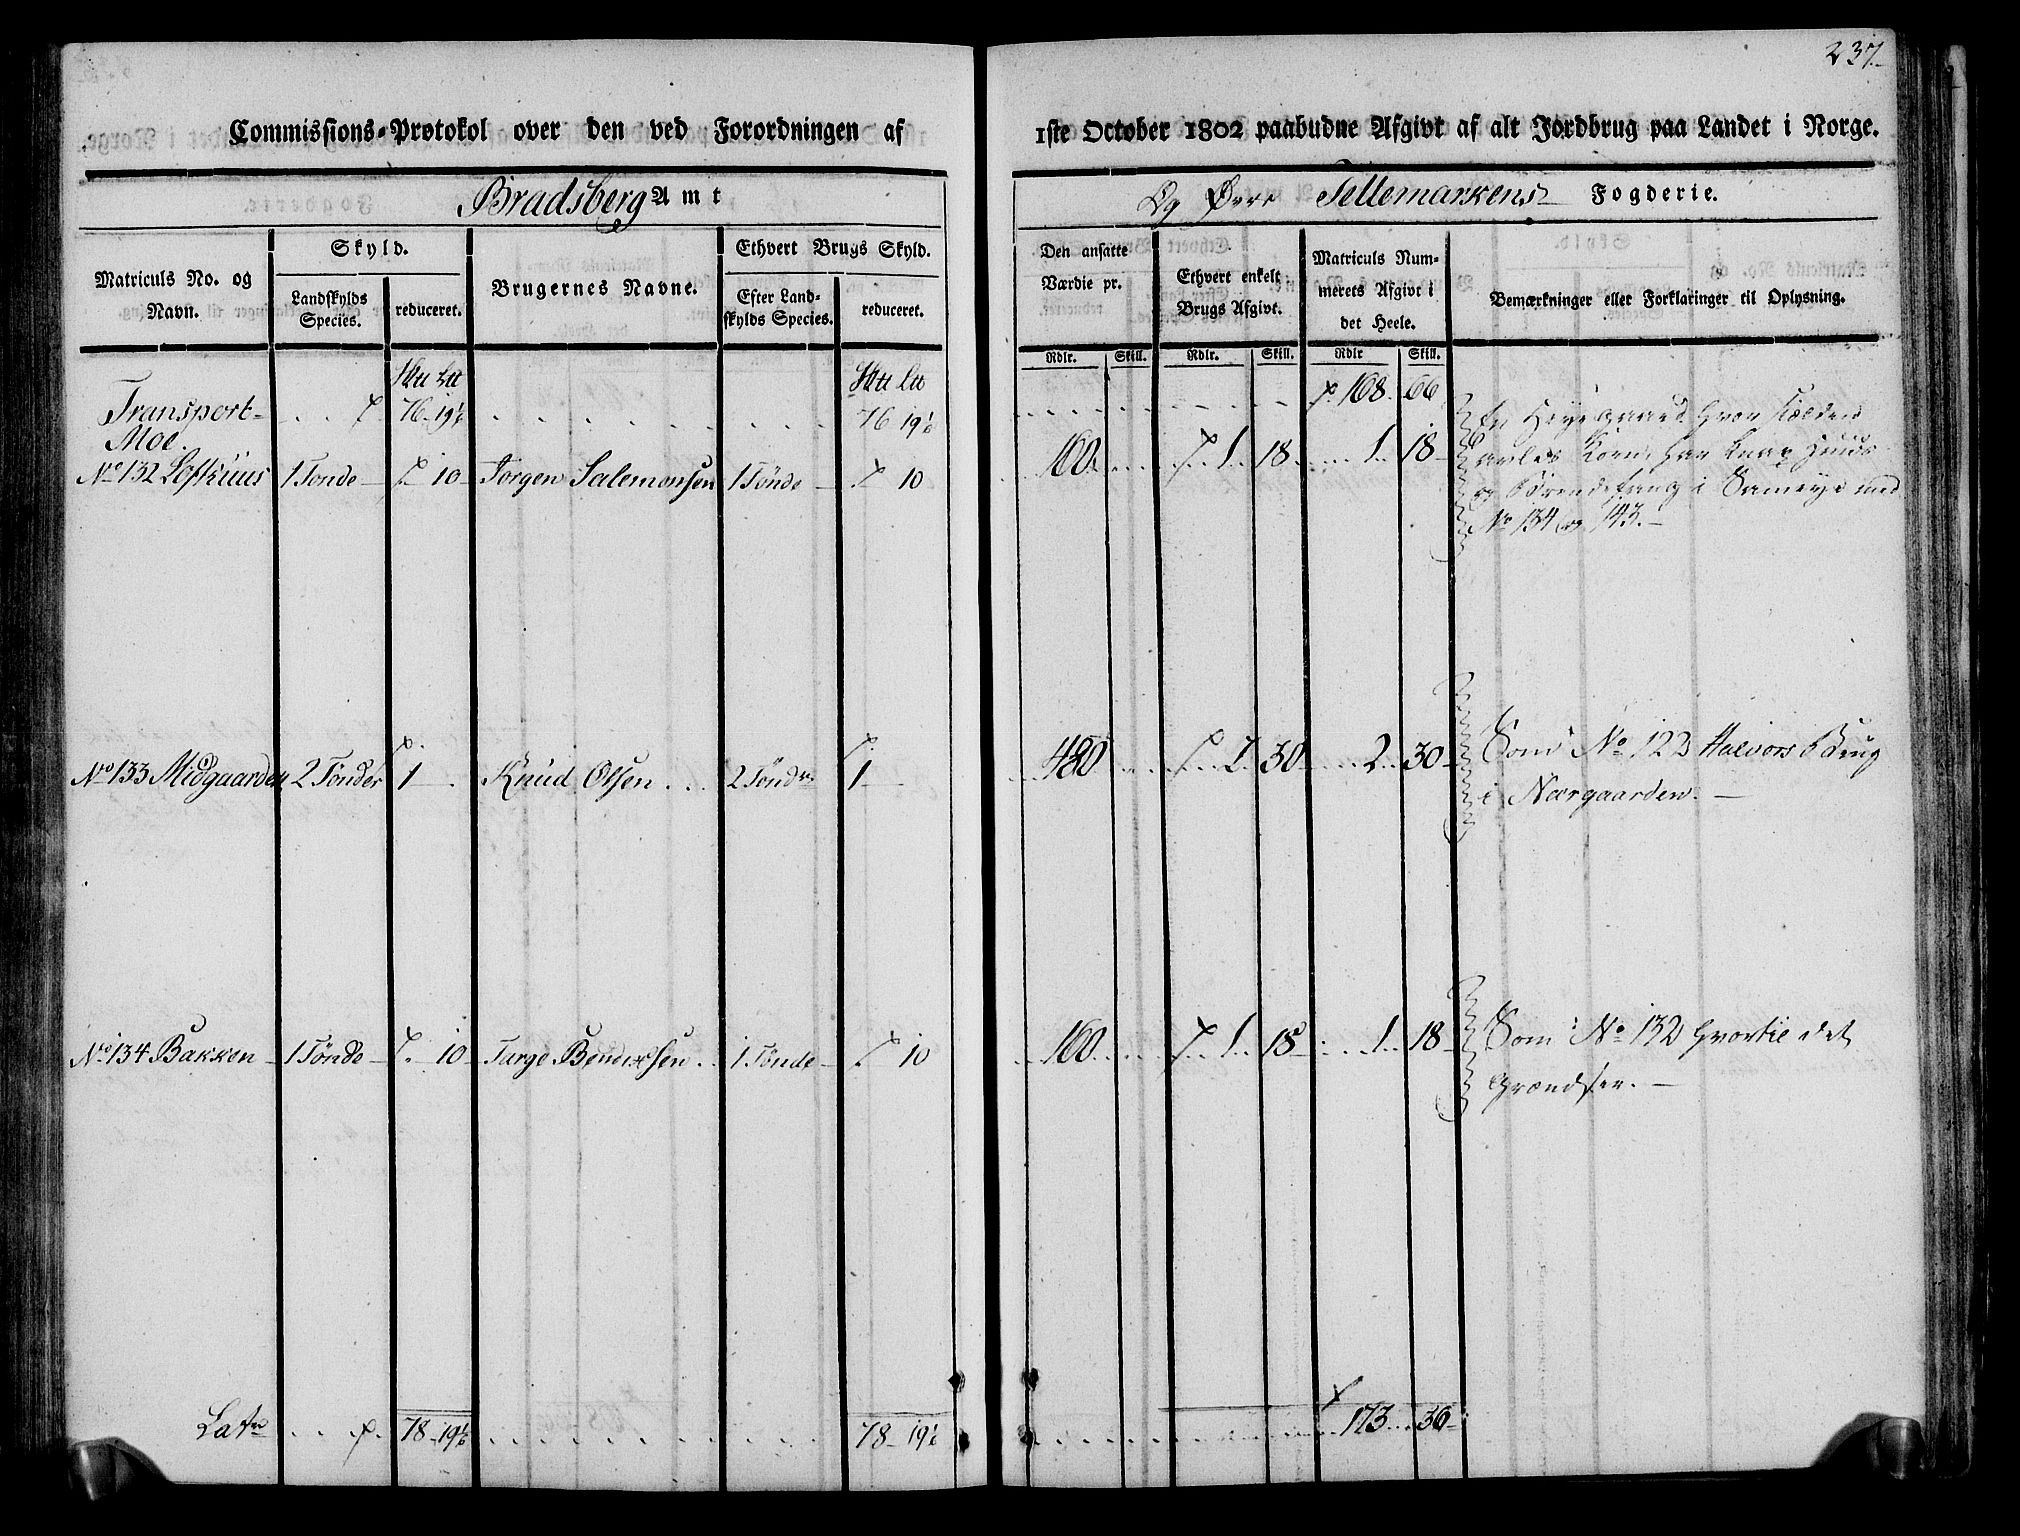 237.
Commissions-Protokol over den ved Forordningen af 1ste October 1802 paabudne Afgivt af alt Jordbrug paa Landet i Norge.
Bradsberg Amt
Og Øvre Tellemarkens Fogderie.
Matriculs No. og Navn.
Skyld.
Landskylds Species.
reduceret.
Brugernes Navne.
Ethvert Brugs Skyld.
Efter Landskylds Species.
reduceret.
Den ansatte Værdie pr.
Ethvert enkelt Brugs Afgivt.
Matriculs Nummerets Afgivt i det Heele.
Bemærkninger eller Forklaringer til Oplysning.
Rdlr. Skill. Rdlr. Skill. Rdlr Skill.
Transport 76 19½ 76 19½ 168 66
Moe.
No 132 Lofthuus 1 Tønde 10 Jorgen Salemonsen 1 Tønde 10 160 1 18 1 18
En Heyegaard hvor sielden
avles Korn, har knap Huus
og Brændefang i Sameye med
No 134 og 143.
No 133 Midgaarden 2 Tønder 1 Knud Olsen 2 Tønder 1 480 2 30 2 30
Som No 123 Halvors Brug
i Nærgaarden.
No 134 Bakken 1 Tønde 10 Targe Bendixsen 1 Tønde 10 160 1 18 1 18
Som No 132 hvortil det
Grændser.
Latr 78 19½ 78 19½ 173 36